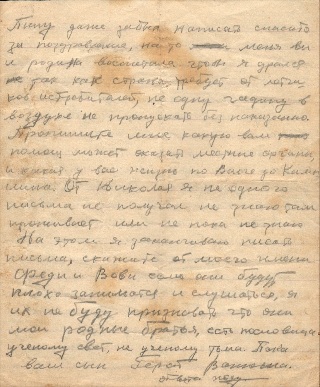 Пишу даже забыл написать спасибо
за поздравления, на то меня вы
и родина воспитала чтобы я дрался
так как страна, требует от летчи
ков истребителей, не одну гадину в
воздухе не пропускать без наказанно
Пропишите мне какую вам
помощ может оказат местные органы
и какая у вас жизнь по
От Николая я не одного
письма не получал не знаю там
проживает или не пока не знаю
На этом я заканчиваю писать
письма, скажите от моего имени
Феди и Вови если они будут
плохо заниматся и слушаться, я
их не буду признавать что они
мои родные братья, есть пословица
ученому свет, не ученому тьма. Пока
ваш сын Герой
ответа жду